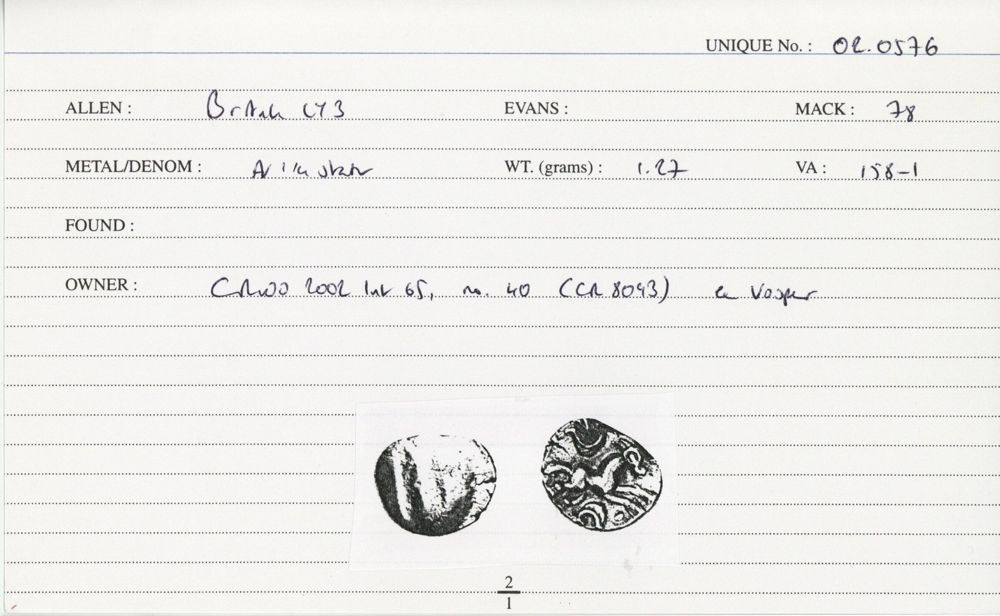 UNIQUE No. : 02.0576
ALLEN : British LY3 EVANS : MACK : 78
METAL/DENOM : AV 1/4 stater WT. (grams) : 1.27 VA : 158-1
FOUND :
OWNER : 2002 List 65, no. 40 (CR 8093) ex Vosper
2
1